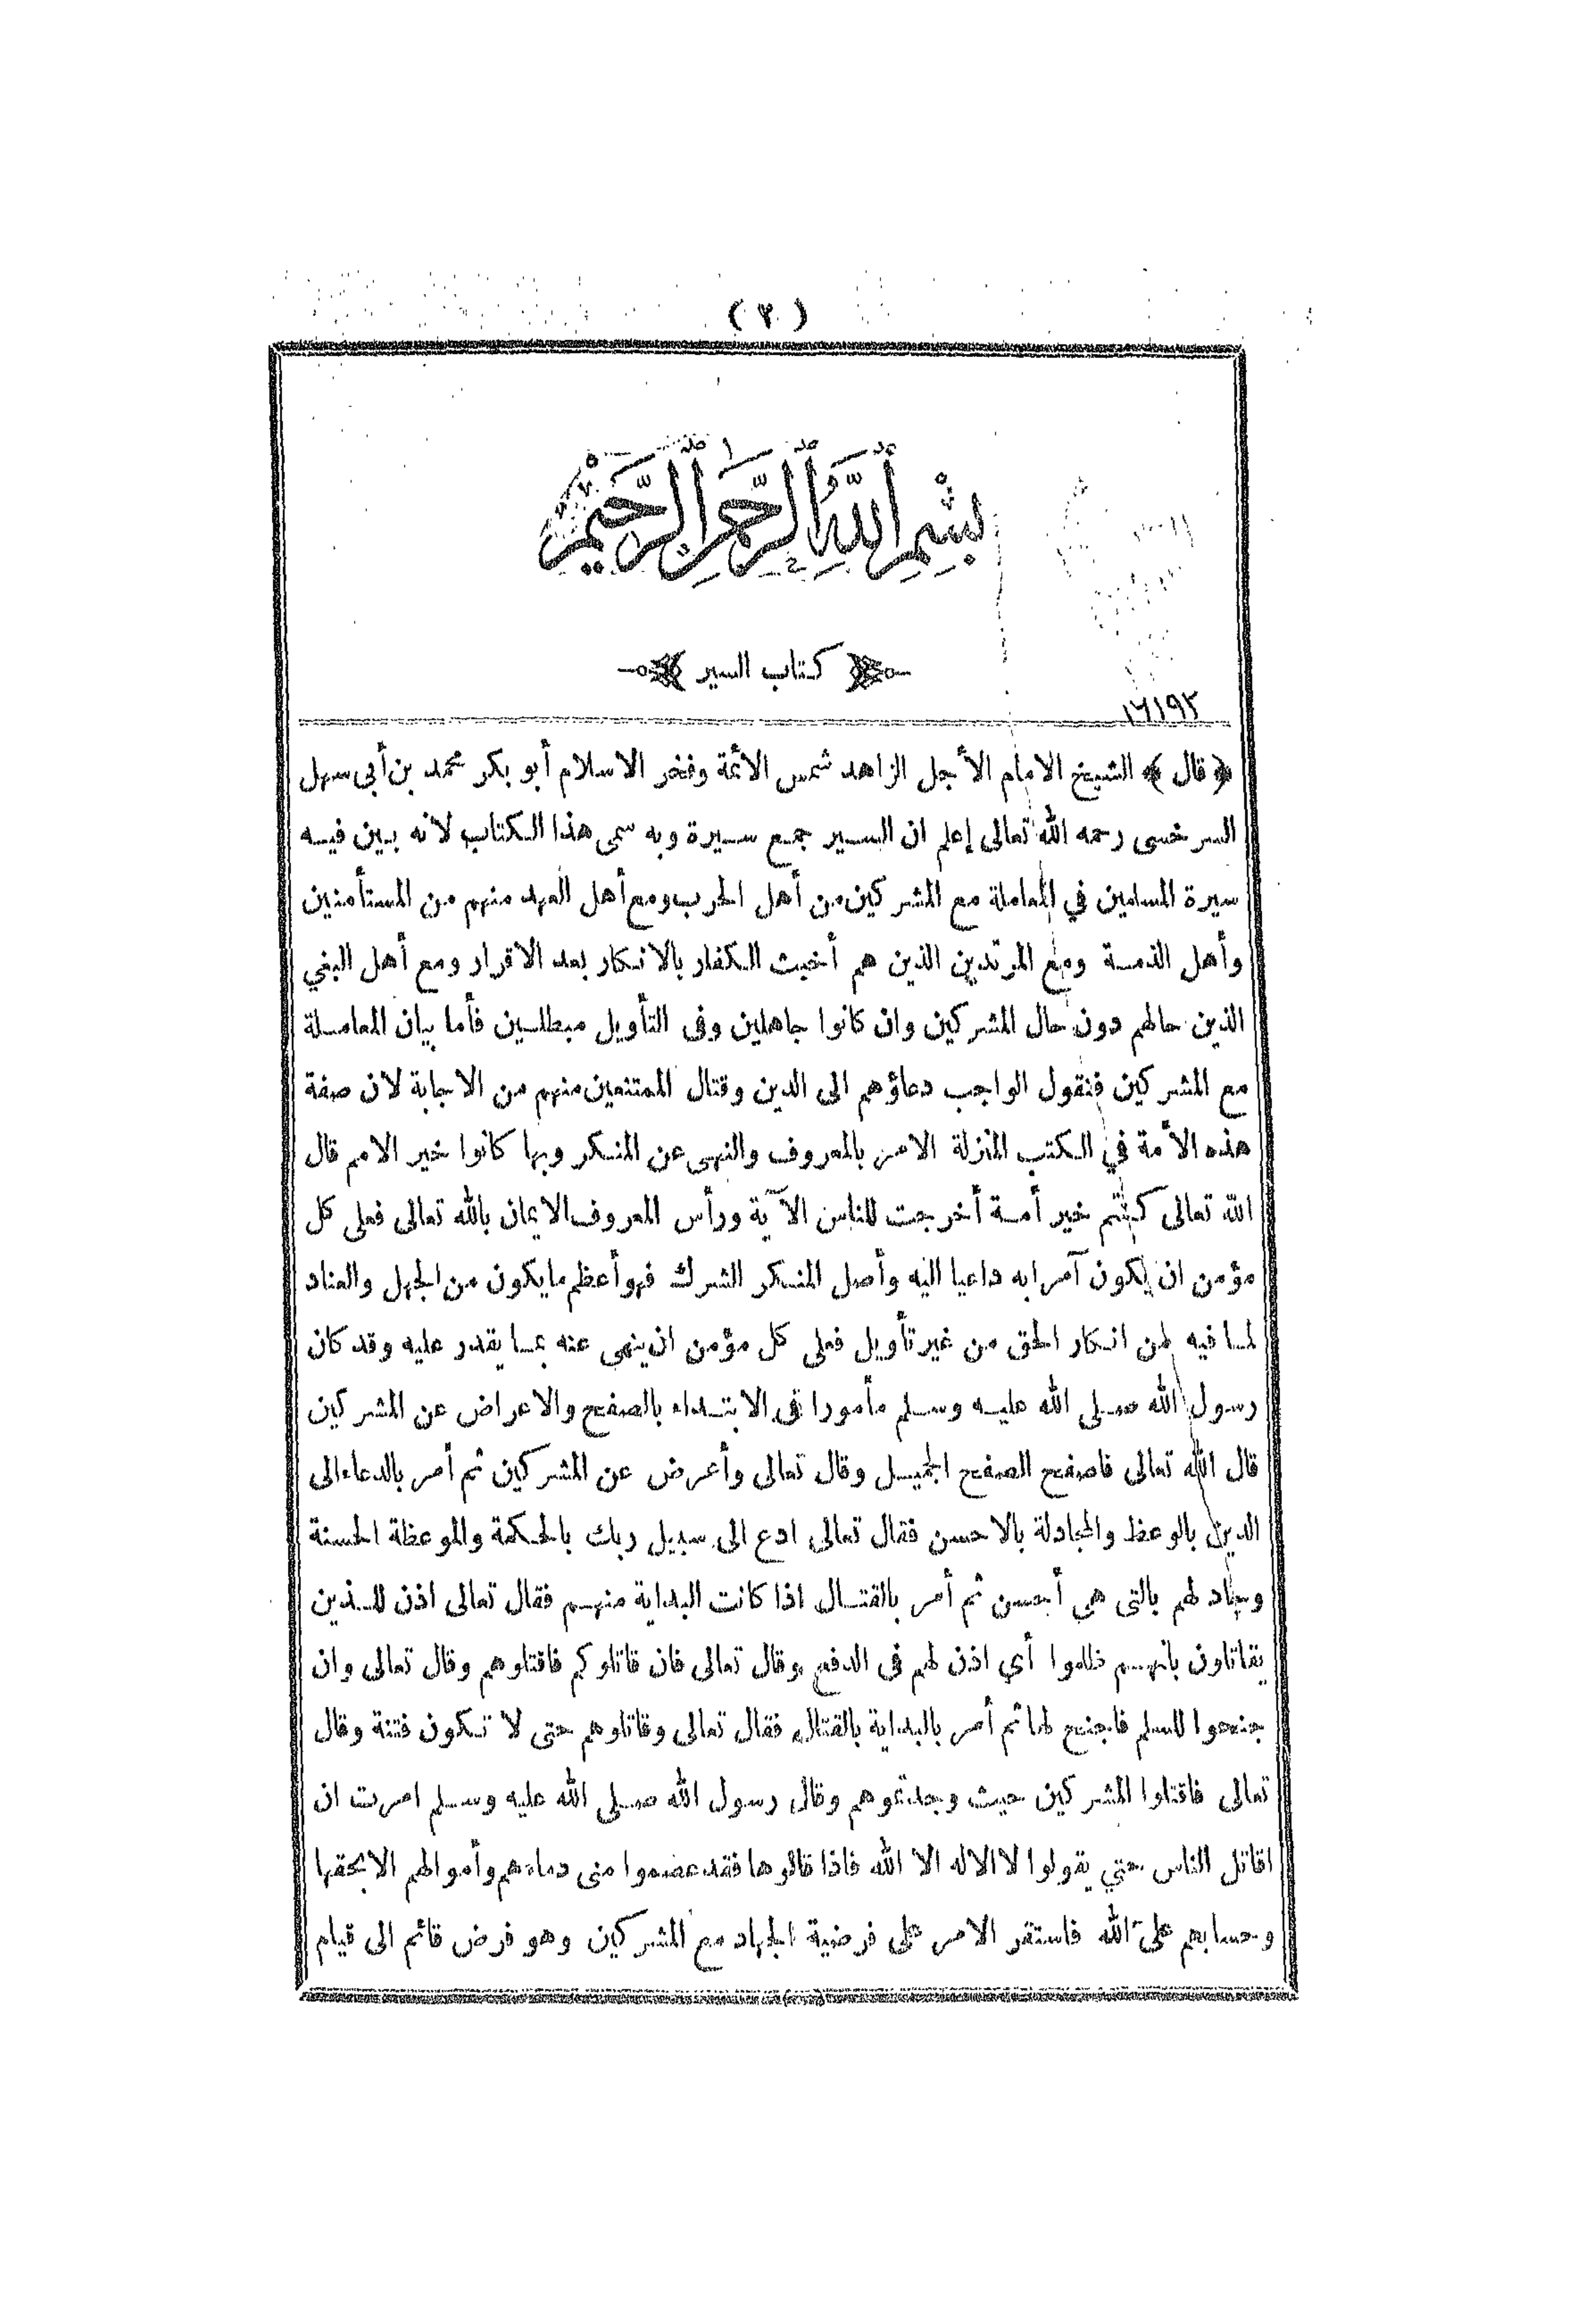 ( ٢ )
بِسْمِ ٱللَّهِ ٱلرَّحْمَٰنِ ٱلرَّحِيمِ
كتاب السير
١٦١٩٢
﴿ قال ﴾ الشيخ الامام الأجل الزاهد شمس الائمة وفخر الاسلام أبو بكر محمد بن أبى سهل
السرخسى رحمه الله تعالى إعلم ان السير جمع سيرة وبه سمى هذا الكتاب لانه بين فيه
سيرة المسلمين في المعاملة مع المشركين من أهل الحرب ومع أهل العهد منهم من المستأمنين
وأهل الذمة ومع المرتدين الذين هم أخبث الكفار بالانكار بعد الاقرار ومع أهل البغي
الذين حالهم دون حال المشركين وان كانوا جاهلين وفى التأويل مبطلين فأما بيان المعاملة
مع المشركين فنقول الواجب دعاؤهم الى الدين وقتال الممتنعين منهم من الاجابة لان صفة
هذه الأمة في الكتب المنزلة الامر بالمعروف والنهى عن المنكر وبها كانوا خير الامم قال
الله تعالى كنتم خير أمة أخرجت للناس الآية ورأس المعروف الايمان بالله تعالى فعلى كل
مؤمن ان يكون آمرا به داعيا اليه وأصل المنكر الشرك فهو أعظم ما يكون من الجهل والعناد
لما فيه من انكار الحق من غير تأويل فعلى كل مؤمن ان ينهى عنه بما يقدر عليه وقد كان
رسول الله صلى الله عليه وسلم مأمورا فى الابتداء بالصفح والاعراض عن المشركين
قال الله تعالى فاصفح الصفح الجميل وقال تعالى وأعرض عن المشركين ثم أمر بالدعاء الى
الدين بالوعظ والمجادلة بالاحسن فقال تعالى ادع الى سبيل ربك بالحكمة والموعظة الحسنة
وجاد لهم بالتى هي أحسن ثم أمر بالقتال اذا كانت البداية منهم فقال تعالى اذن للذين
يقاتلون بانهم ظلموا أي اذن لهم فى الدفع وقال تعالى فان قاتلوكم فاقتلوهم وقال تعالى وان
جنحوا للسلم فاجنح لها ثم أمر بالبداية بالقتال فقال تعالى وقاتلوهم حتى لا تكون فتنة وقال
تعالى فاقتلوا المشركين حيث وجدتموهم وقال رسول الله صلى الله عليه وسلم امرت ان
اقاتل الناس حتي يقولوا لا الاله الا الله فاذا قالوها فقد عصموا منى دماءهم وأموالهم الا بحقها
وحسابهم على الله فاستقر الامر على فرضية الجهاد مع المشركين وهو فرض قائم الى قيام